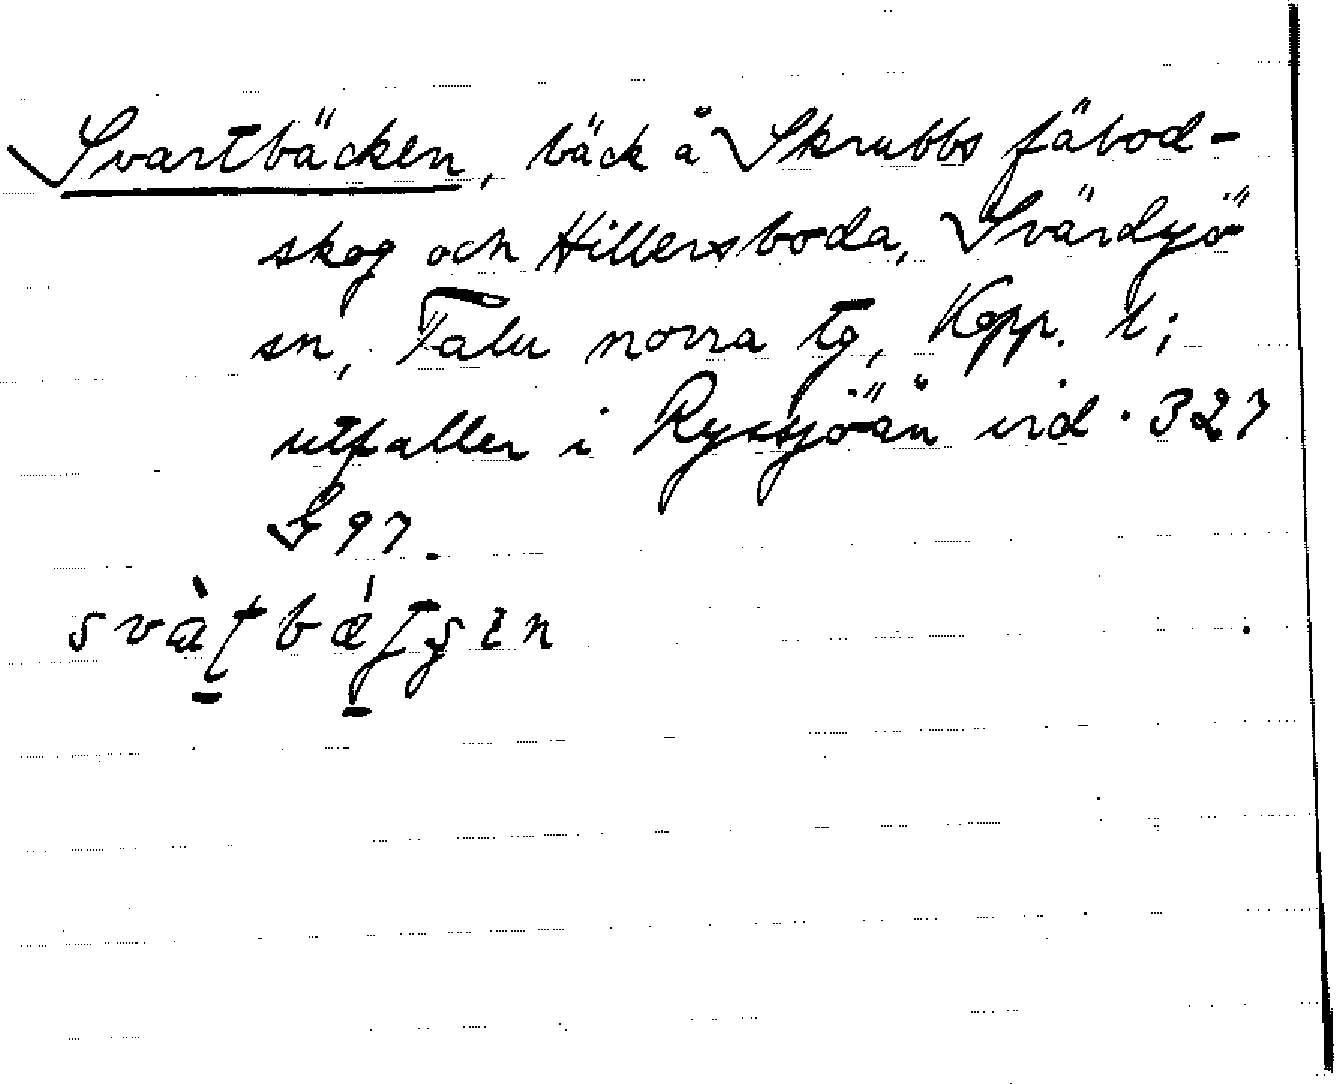 Svartbäcken, bäck å Skrubbs fäbod-
skog och Hillersboda, Svärdsjö
sn, Falu norra tg, Kopp. l;
utfaller i Ryssjöån vid . 327
S 97.